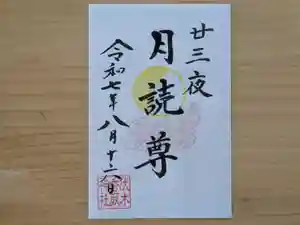 廿三夜
月読尊
令和七年八月十二日